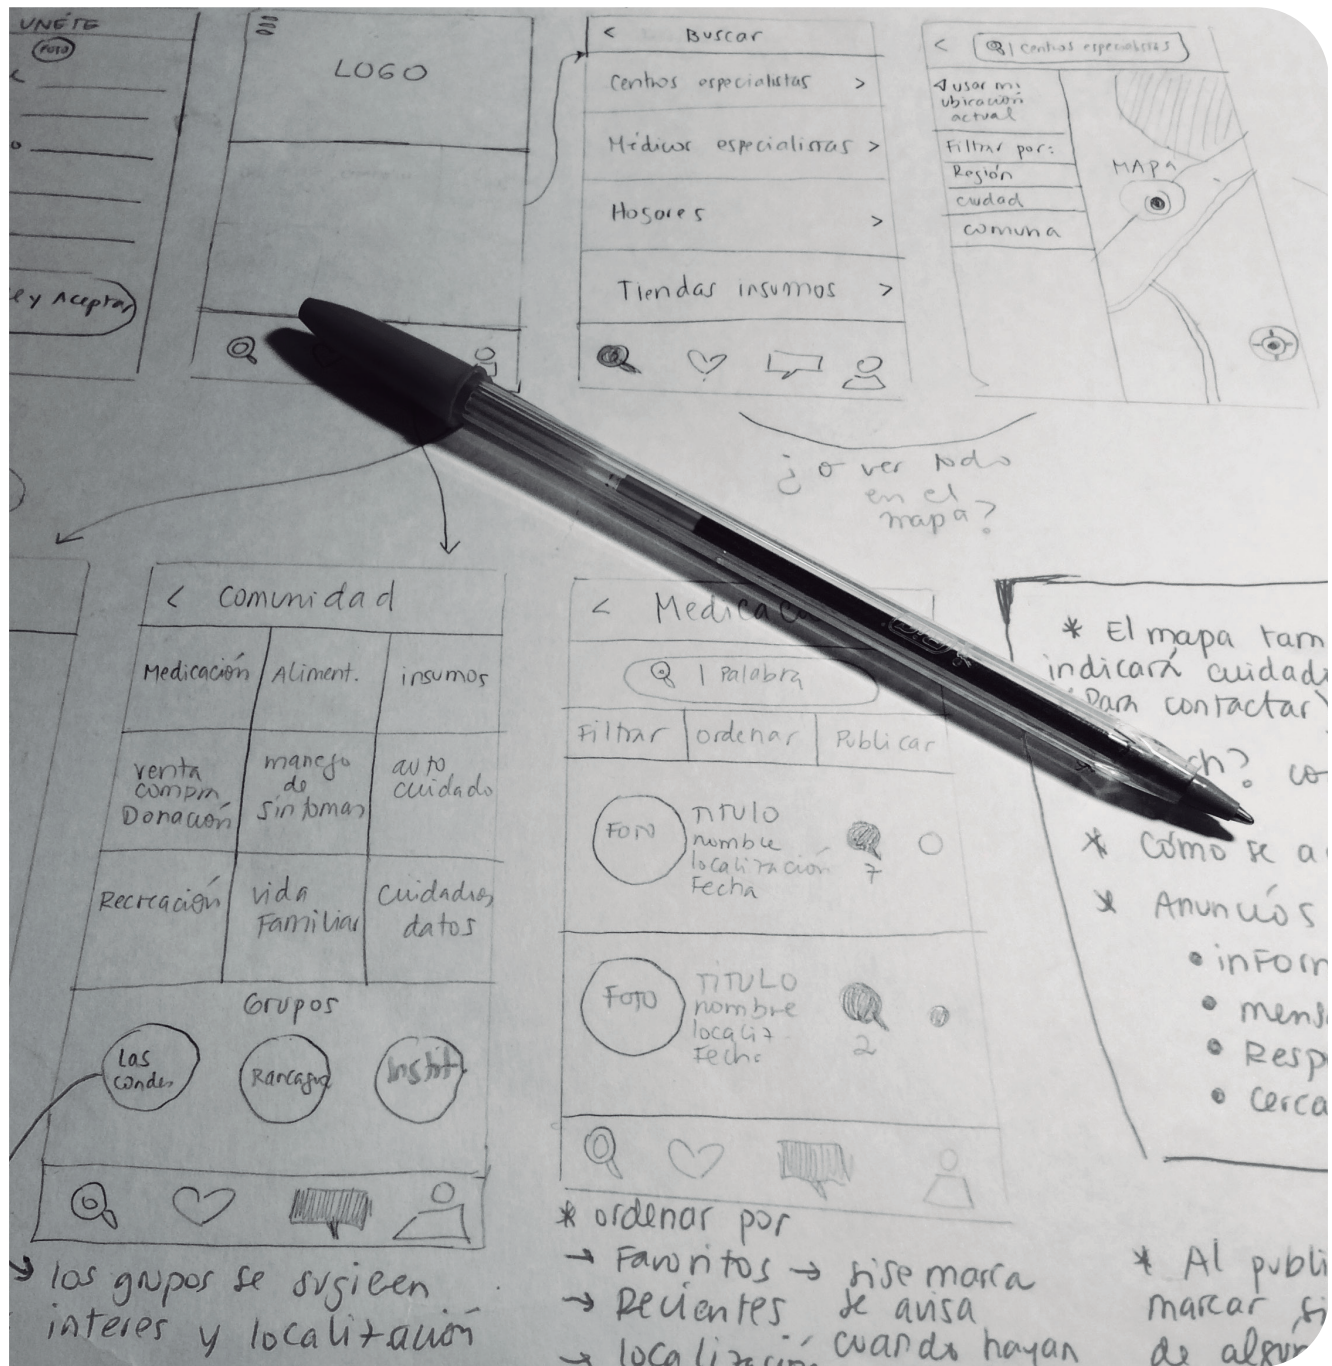 UNÉTE
FOTO
y Aceptar
LOGO
< Buscar
Centros especialistas >
Médicos especialistas >
Hogares >
Tiendas insumos >
< | Centros especialistas
usar mi
ubicación
actual
Filtrar por:
Región
ciudad
comuna
MAPA
¿o ver todo
en el
mapa?
< Comunidad
Medicación
Aliment.
insumos
venta
compra
Donación
manejo
de
sintomas
auto
cuidado
Recreación
vida
Familiar
Cuidados
datos
Grupos
Las
Condes
Rancagua
Instit
→ los grupos se sugieren
interes y localización
< Medicac
| Palabra
Filtrar
ordenar
Publicar
FOTO
TITULO
nombre
localización
Fecha
7
FOTO
TITULO
nombre
localiz
Fecha
2
* ordenar por
→ Favoritos → si se marca
→ Recientes se avisa
→ localización cuando hayan
* El mapa tam
indicará cuidad
Para contactar
ch? co
* Cómo se a
* Anuncios
• inForm
• mens
• Resp
• cerca
* Al publi
marcar si
de algun